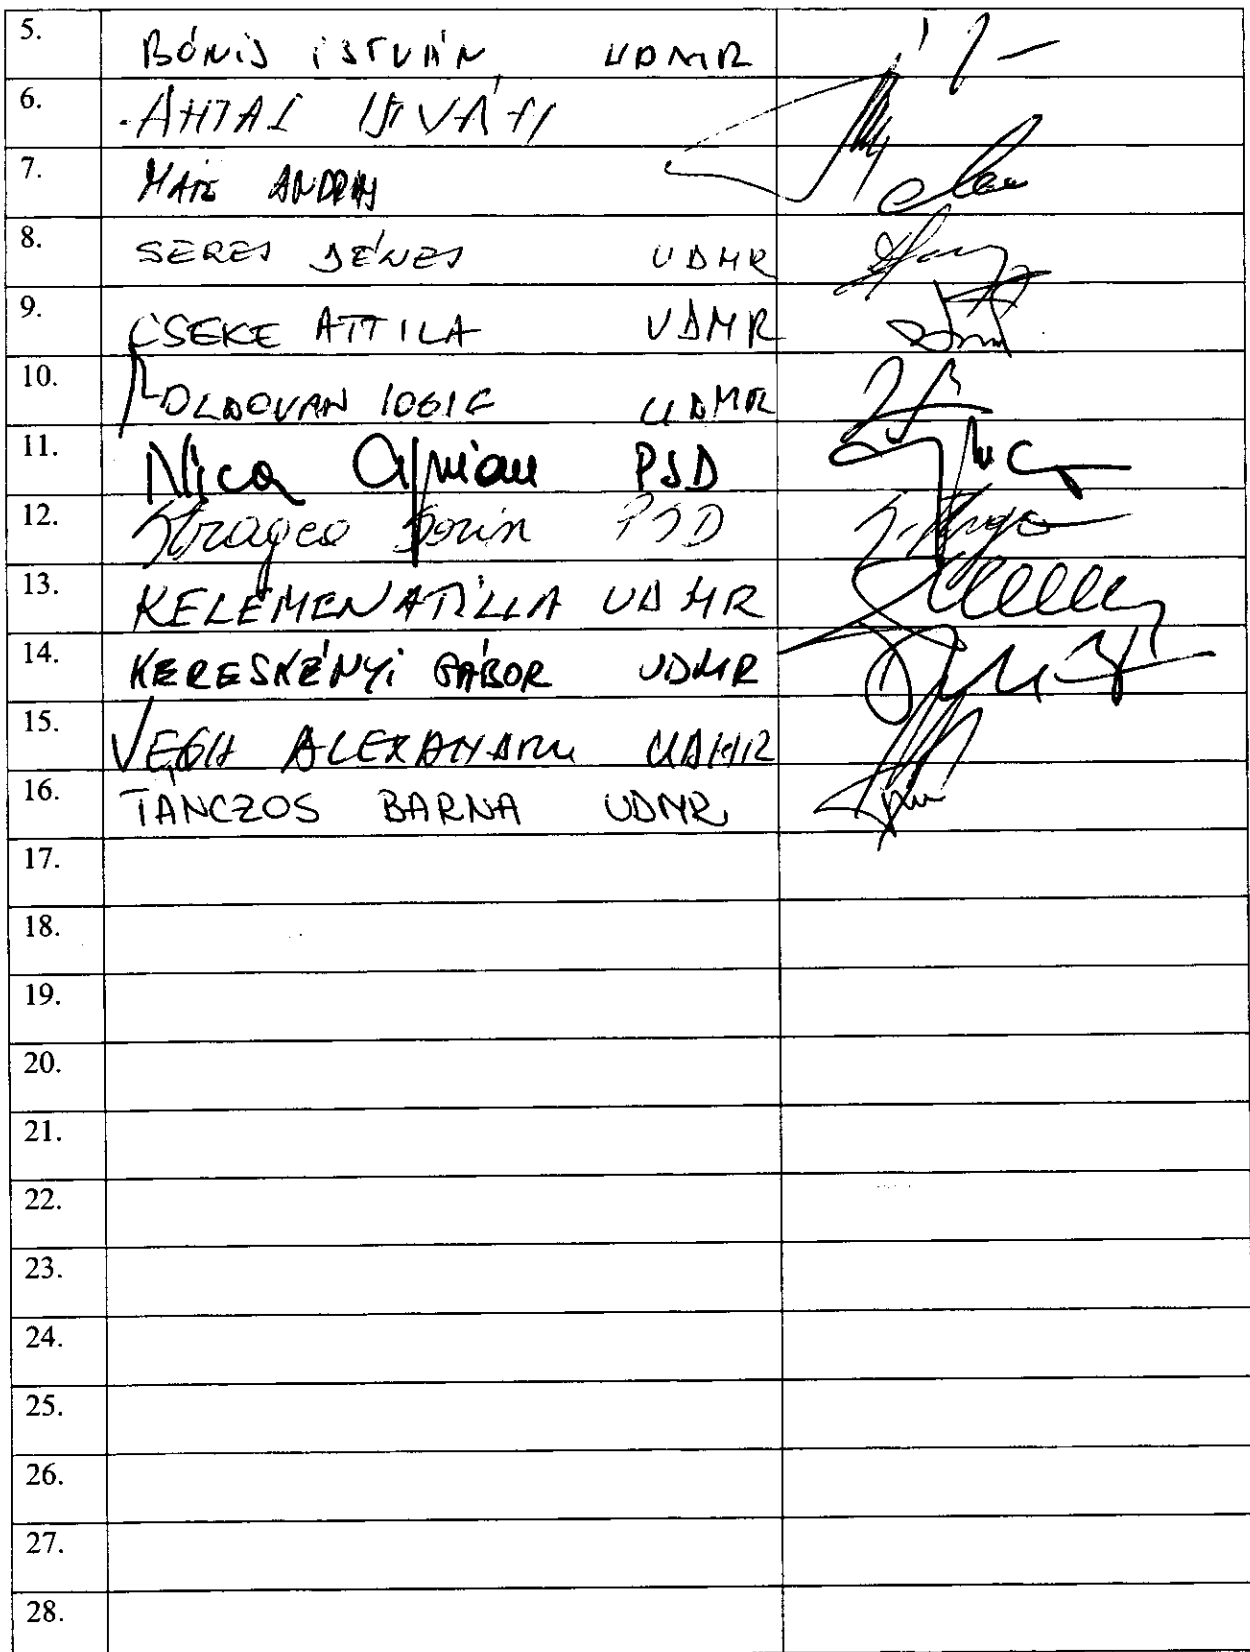 5. BÓNIS ISTVÁN UDMR
6. ANTAL ISTVÁN
7. MATE ANDRAS
8. SERES DÉNES UDMR
9. CSEKE ATTILA UDMR
10. MOLDOVAN IOSIF UDMR
11. Nica Ciprian PSD
12. Sorin PSD
13. KELEMEN ATILLA UDMR
14. KERESKÉNYI GÁBOR UDMR
15. VEGH ALEXANDRU UDMR
16. TANCZOS BARNA UDMR
17.
18.
19.
20.
21.
22.
23.
24.
25.
26.
27.
28.